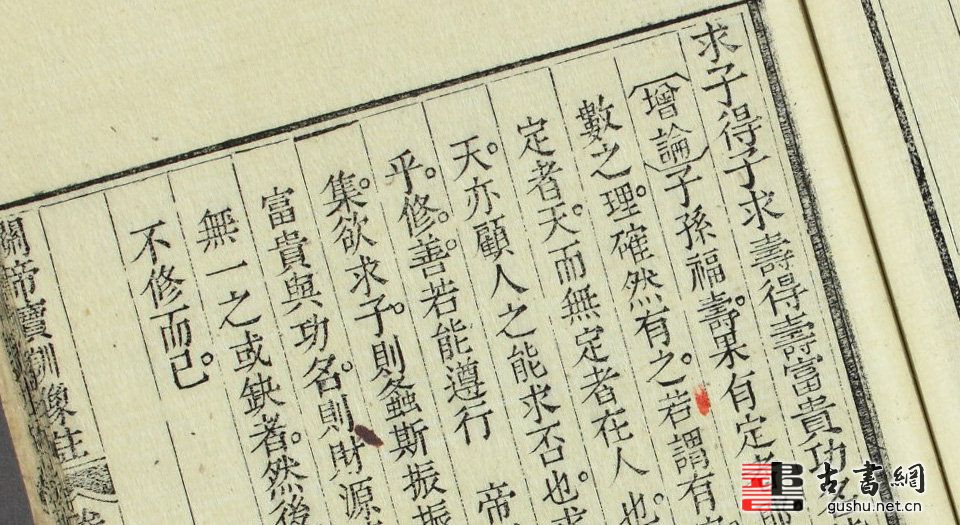 求子得子求壽得壽富貴功名
〔增論〕子孫福壽。果有定者
數之理。確然有之。若謂有定
定者。天。而無定者在人也。
天。亦顧人之能求否也。求
乎。修。善。若能遵行 帝
集。欲求子。則螽斯振振
富貴與功名。則財源
無一之或缺者。然後
不修而已。
關帝寶訓像註
古書網
gushu.net.cn